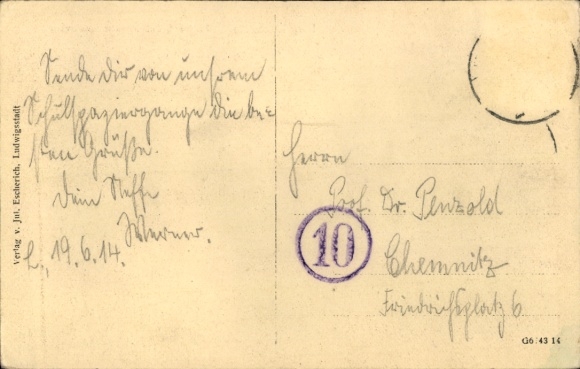 Sende dir von unsrem
Schulspaziergange die be-
sten Grüße.
Dein Neffe
Werner.
L., 19.6.14.
Herrn
Prof. Dr. Penzold
Chemnitz
Friedrichsplatz 6
10
Verlag v. Jul. Escherich, Ludwigsstadt
G6 43 14